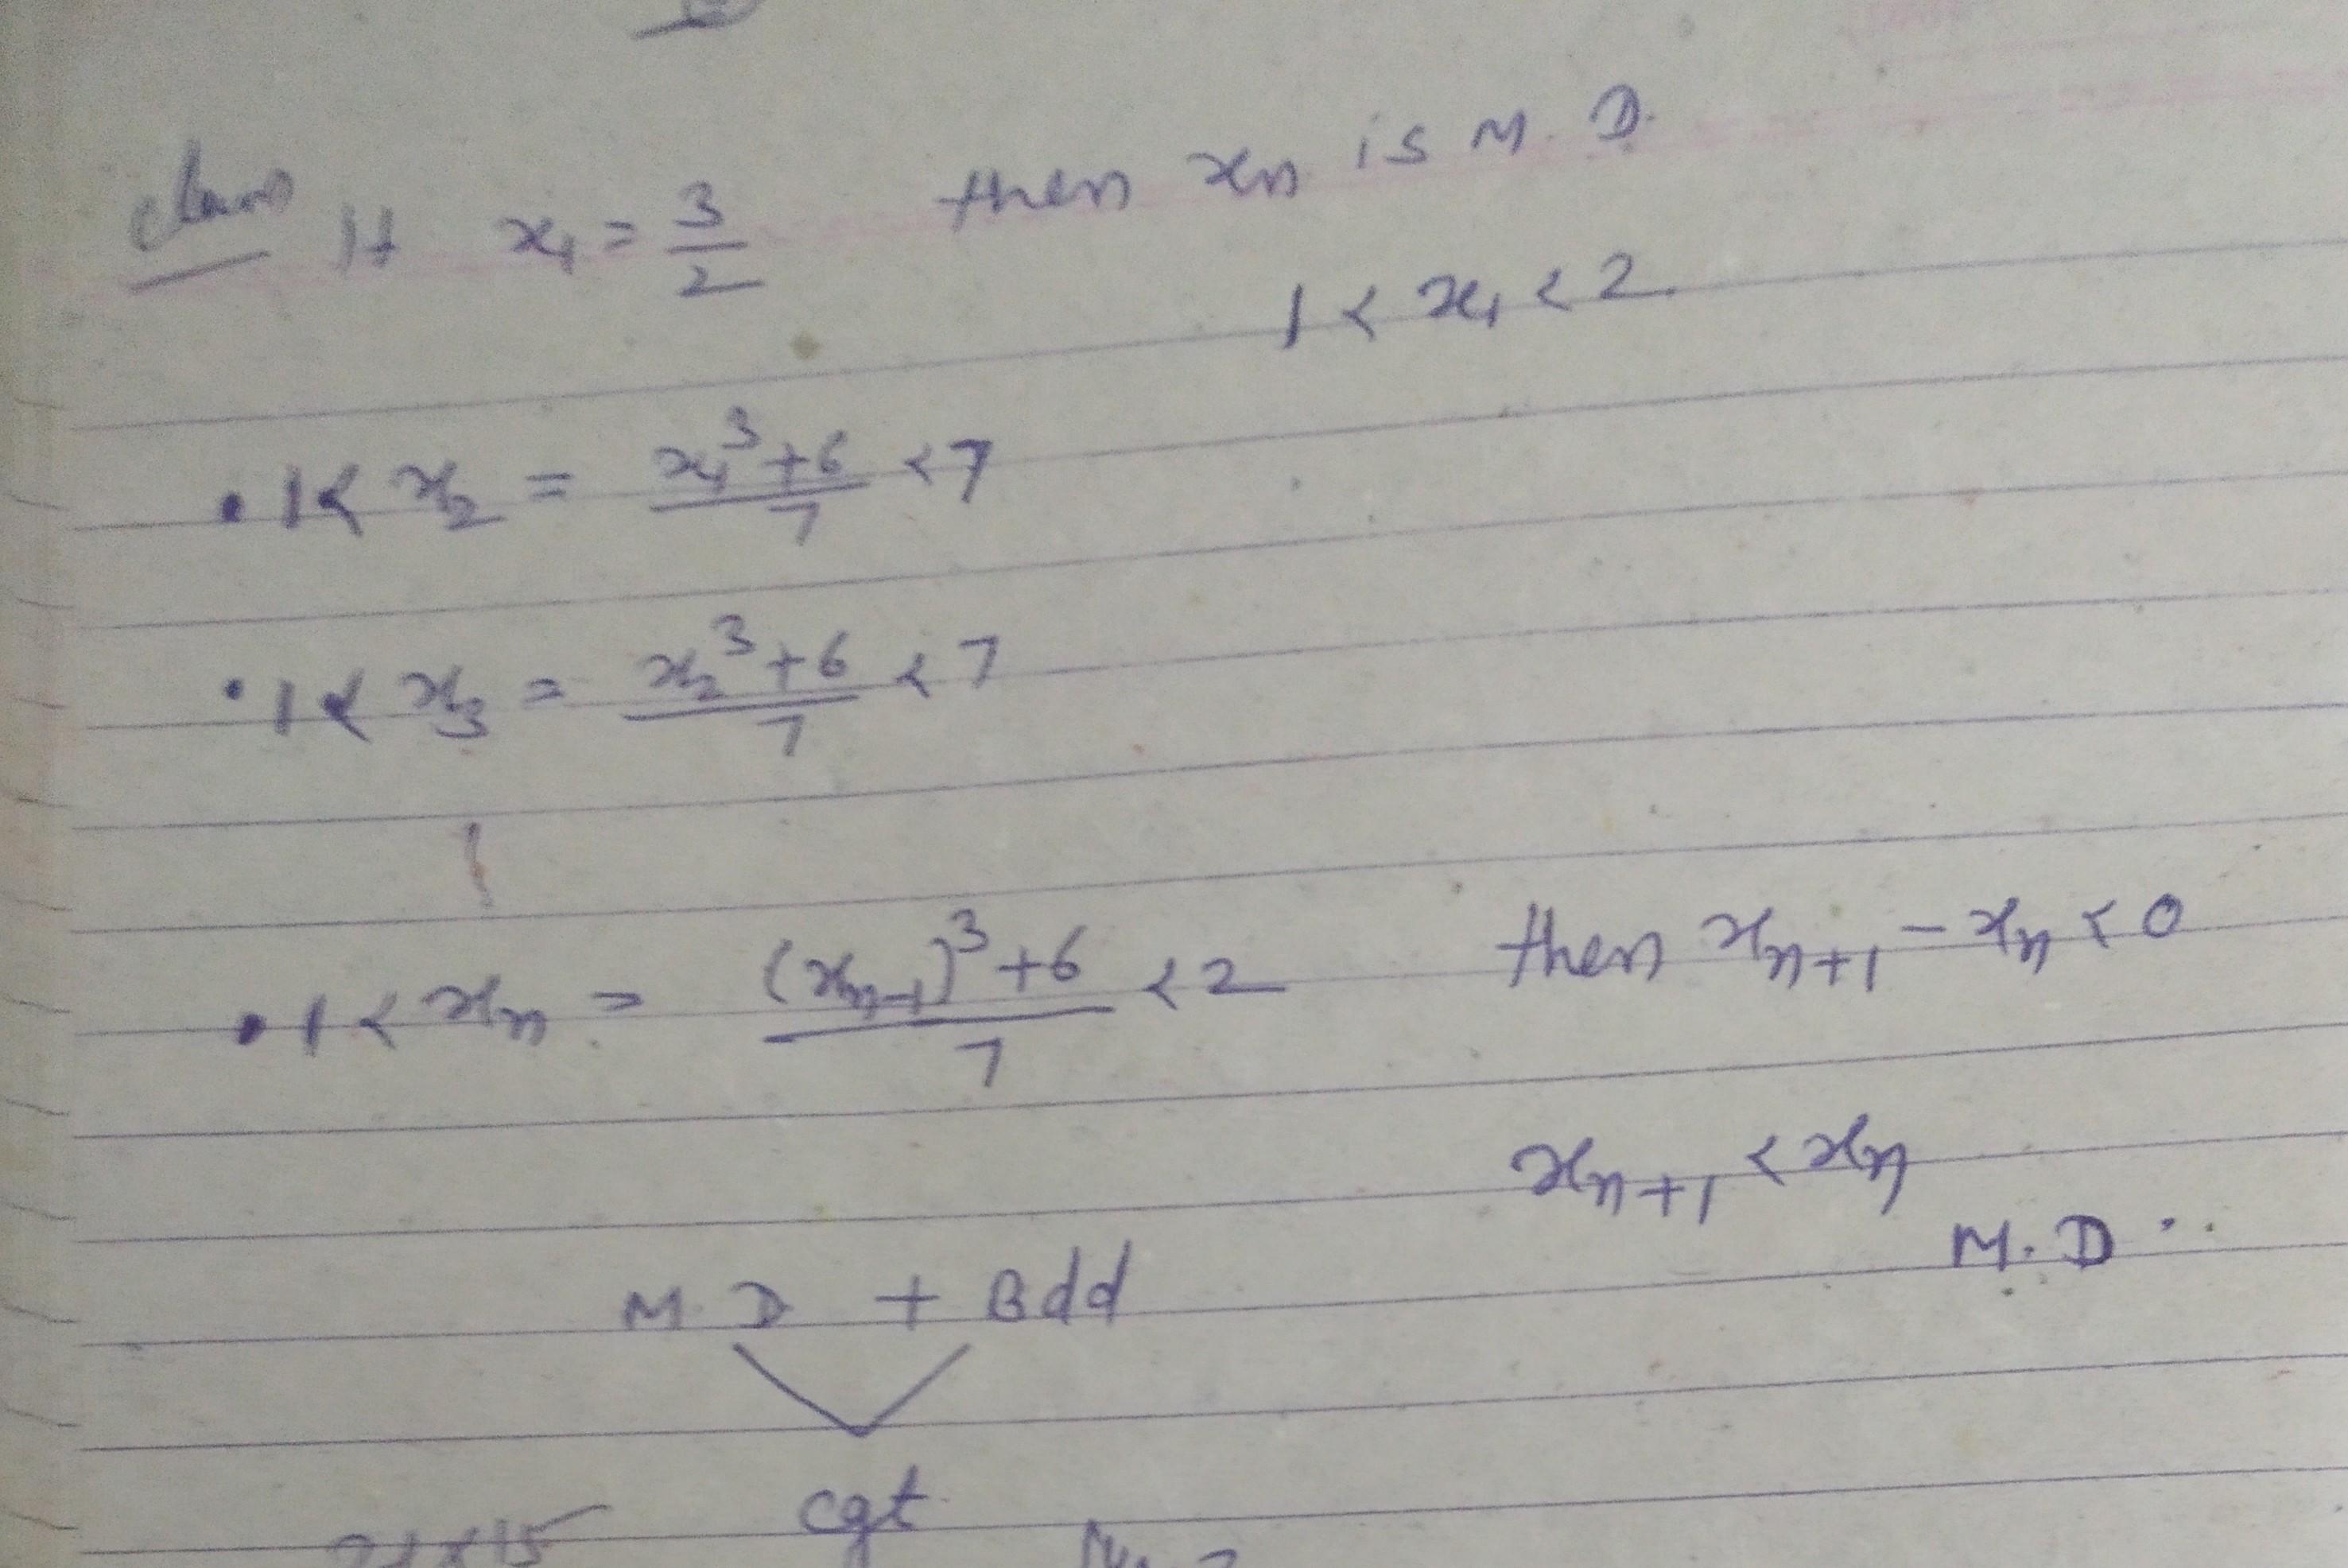 claim If x₁ = 3/2 then xn is M.D.
1 < x₁ < 2.
• 1 < x₂ = (x₁³+6)/7 < 7
• 1 < x₃ = (x₂³+6)/7 < 7
• 1 < xn = ((xn-1)³+6)/7 < 2 then xn+1 - xn < 0
xn+1 < xn
M.D
M.D + Bdd
cgt